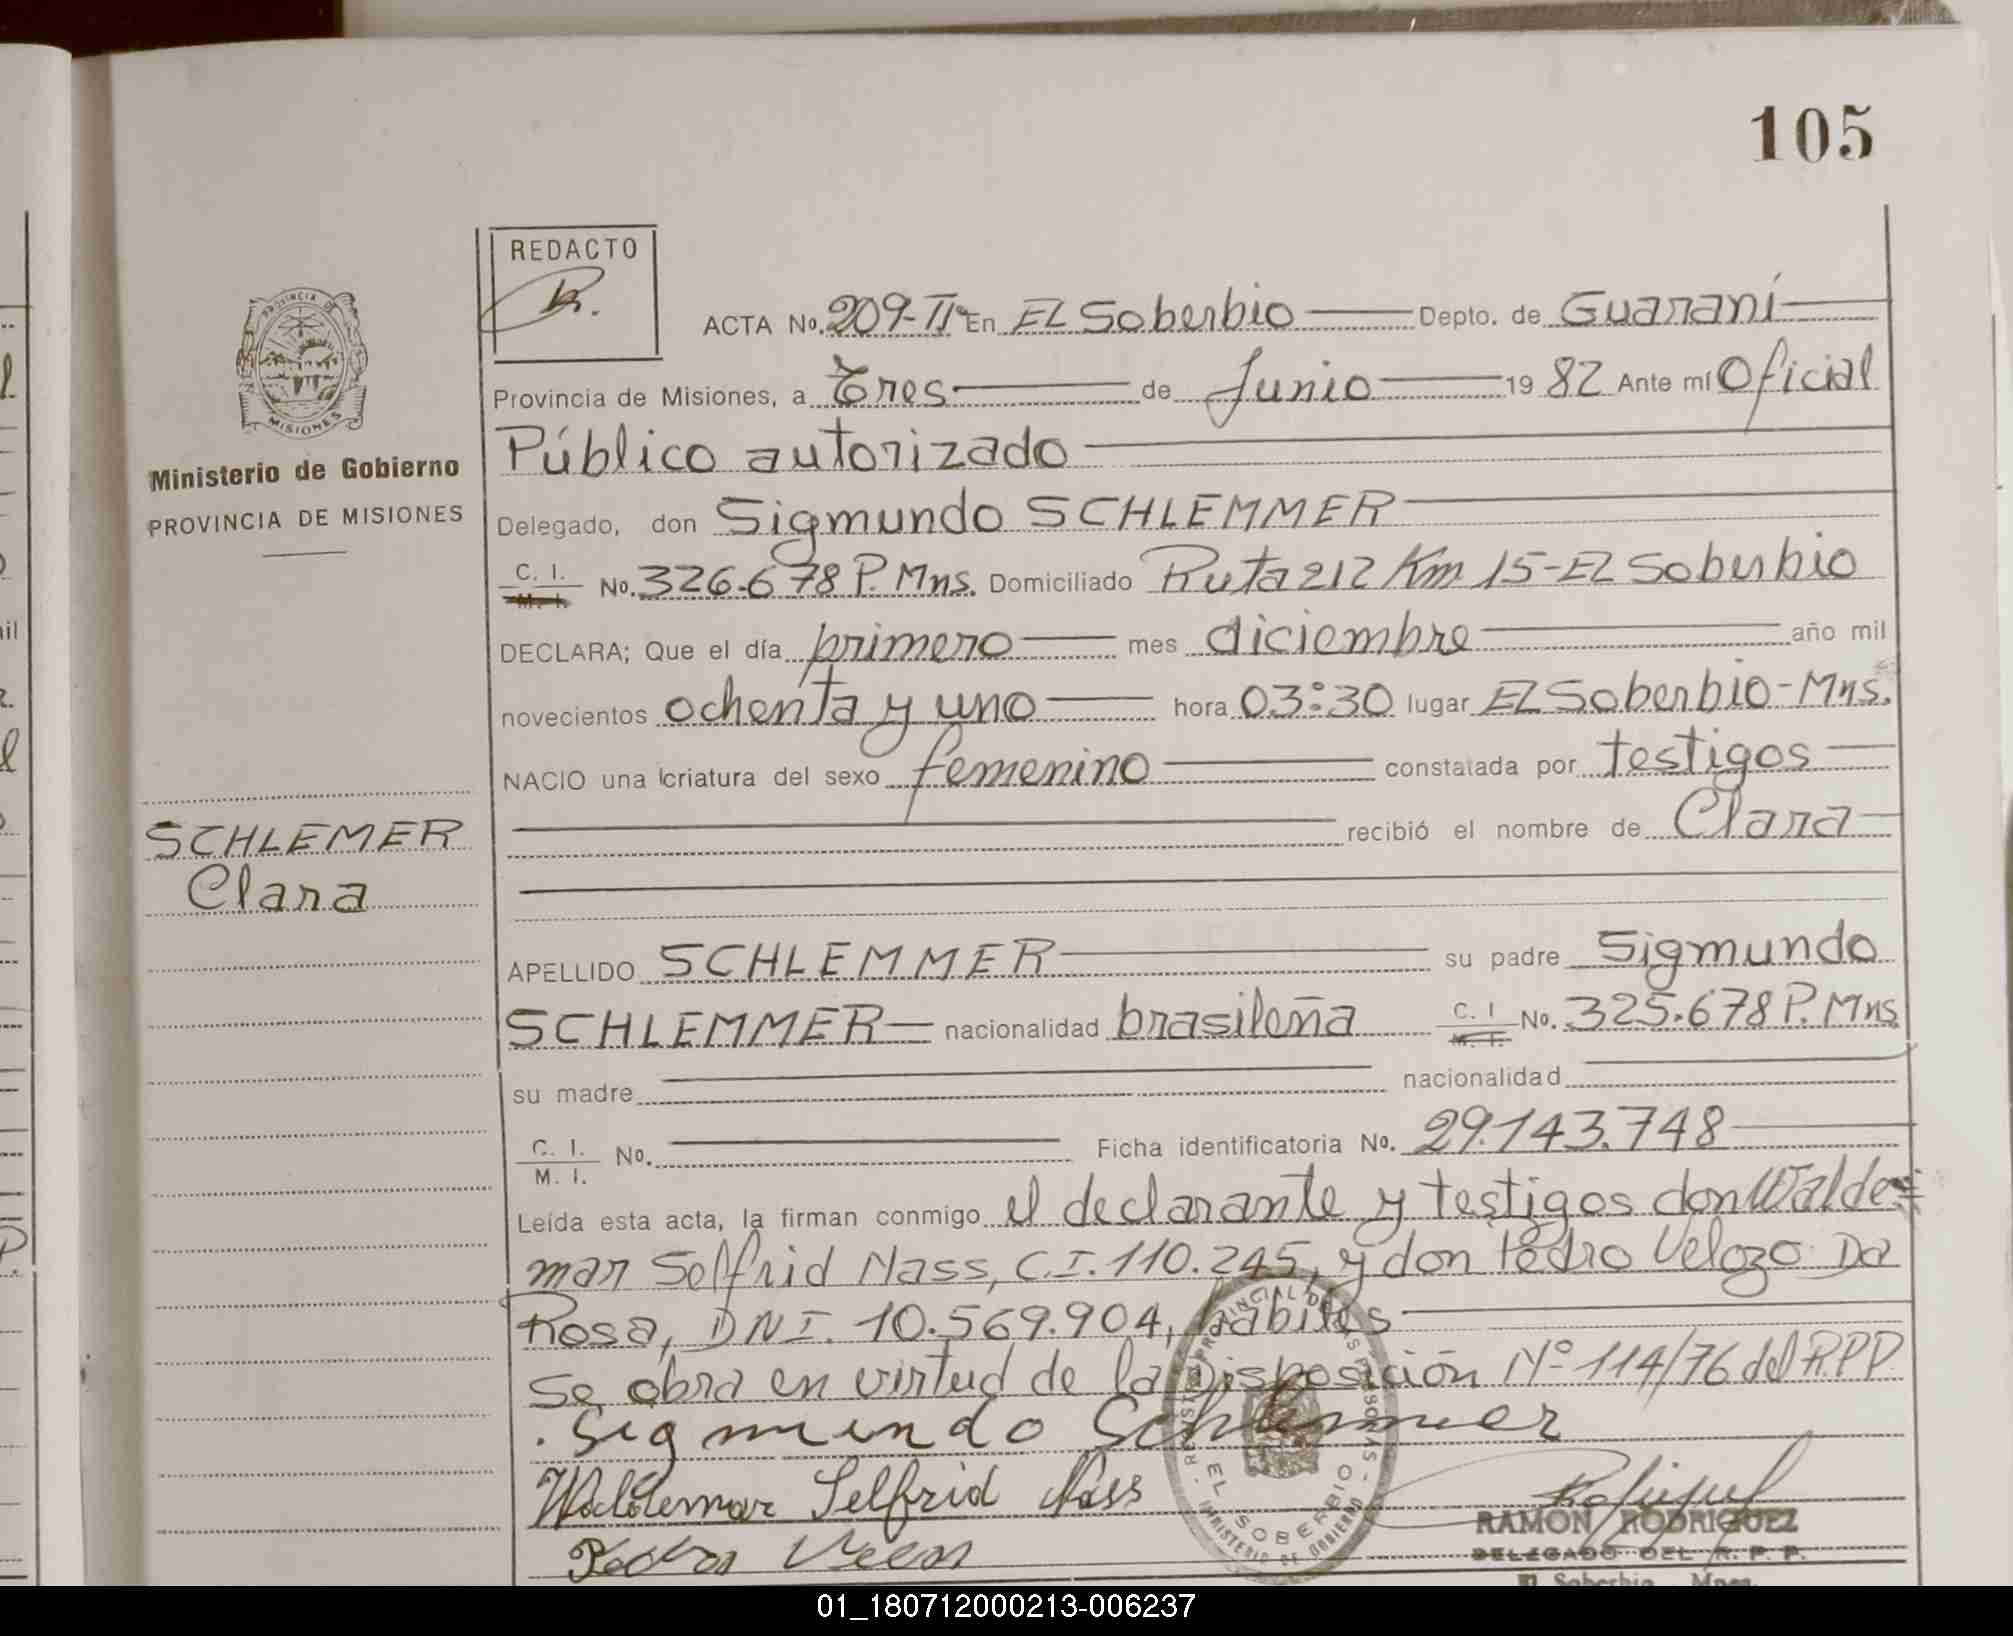 105
REDACTO
ACTA No. 209-IIº En EL Soberbio Depto. de Guaraní
Provincia de Misiones, a Tres de Junio 19 82 Ante mí Oficial
Público autorizado
Ministerio de Gobierno
PROVINCIA DE MISIONES
Delegado, don Sigmundo SCHLEMMER
C. I. M. I. No. 326.678 P. Mns. Domiciliado Ruta 212 Km 15-EL Soberbio
DECLARA; Que el día primero mes diciembre año mil
novecientos ochenta y uno hora 03:30 lugar EL Soberbio-Mns.
NACIO una criatura del sexo femenino constatada por testigos
recibió el nombre de Clara
SCHLEMER
Clara
APELLIDO SCHLEMMER su padre Sigmundo
SCHLEMMER nacionalidad brasileña C. I M. I. No. 325.678 P. Mns
su madre nacionalidad
C. I. M. I. No. Ficha identificatoria No. 29.143.748
Leída esta acta, la firman conmigo el declarante y testigos don Walde=
mar Selfrid Nass, C.I. 110.245, y don Pedro Velozo Da
Rosa, DNI. 10.569.904, hábiles
Se obra en virtud de la Disposición Nº 114/76 del R.P.P.
Sigmundo Schlemmer
Waldemar Selfrid Nass
Pedro
RAMON RODRIGUEZ
DELEGADO DEL R. P. P.
El Soberbio Mnes.
MISIONES
EL SOBERBIO
MINISTERIO DE GOBIERNO
01_180712000213-006237